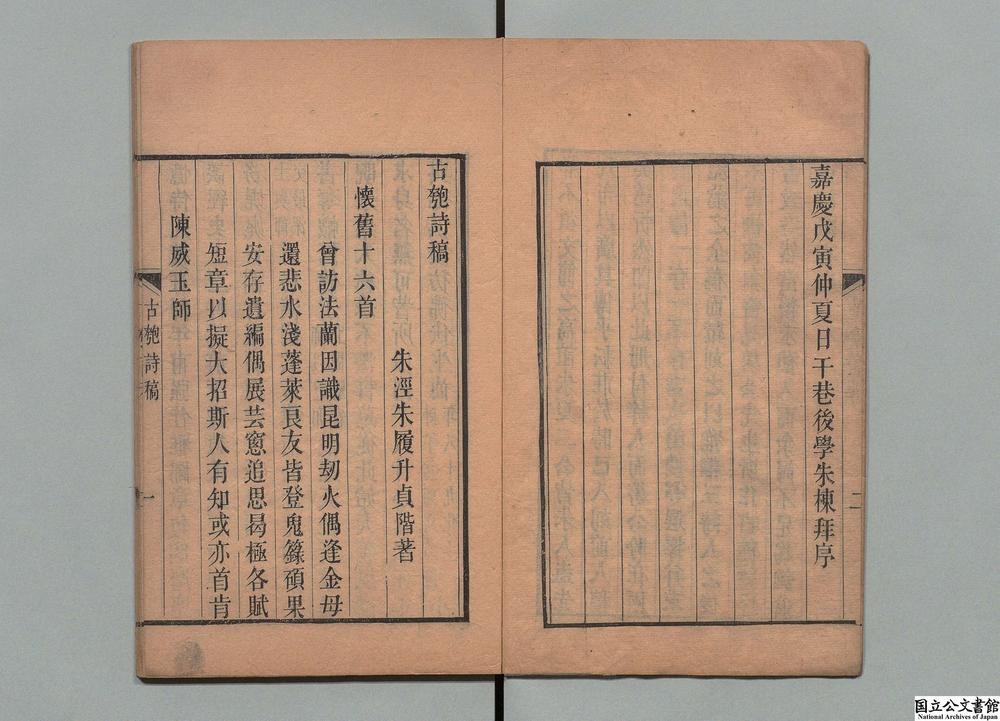 嘉慶戊寅仲夏日干巷後學朱棟拜序
二
古匏詩稿
朱涇朱履升貞階著
懷舊十六首
曾訪法蘭因識昆明刼火偶逢金母
還悲水淺蓬萊良友皆登鬼籙碩果
安存遺編偶展芸窻追思曷極各賦
短章以擬大招斯人有知或亦首肯
陳威玉師
古匏詩稿
一
国立公文書館
National Archives of Japan